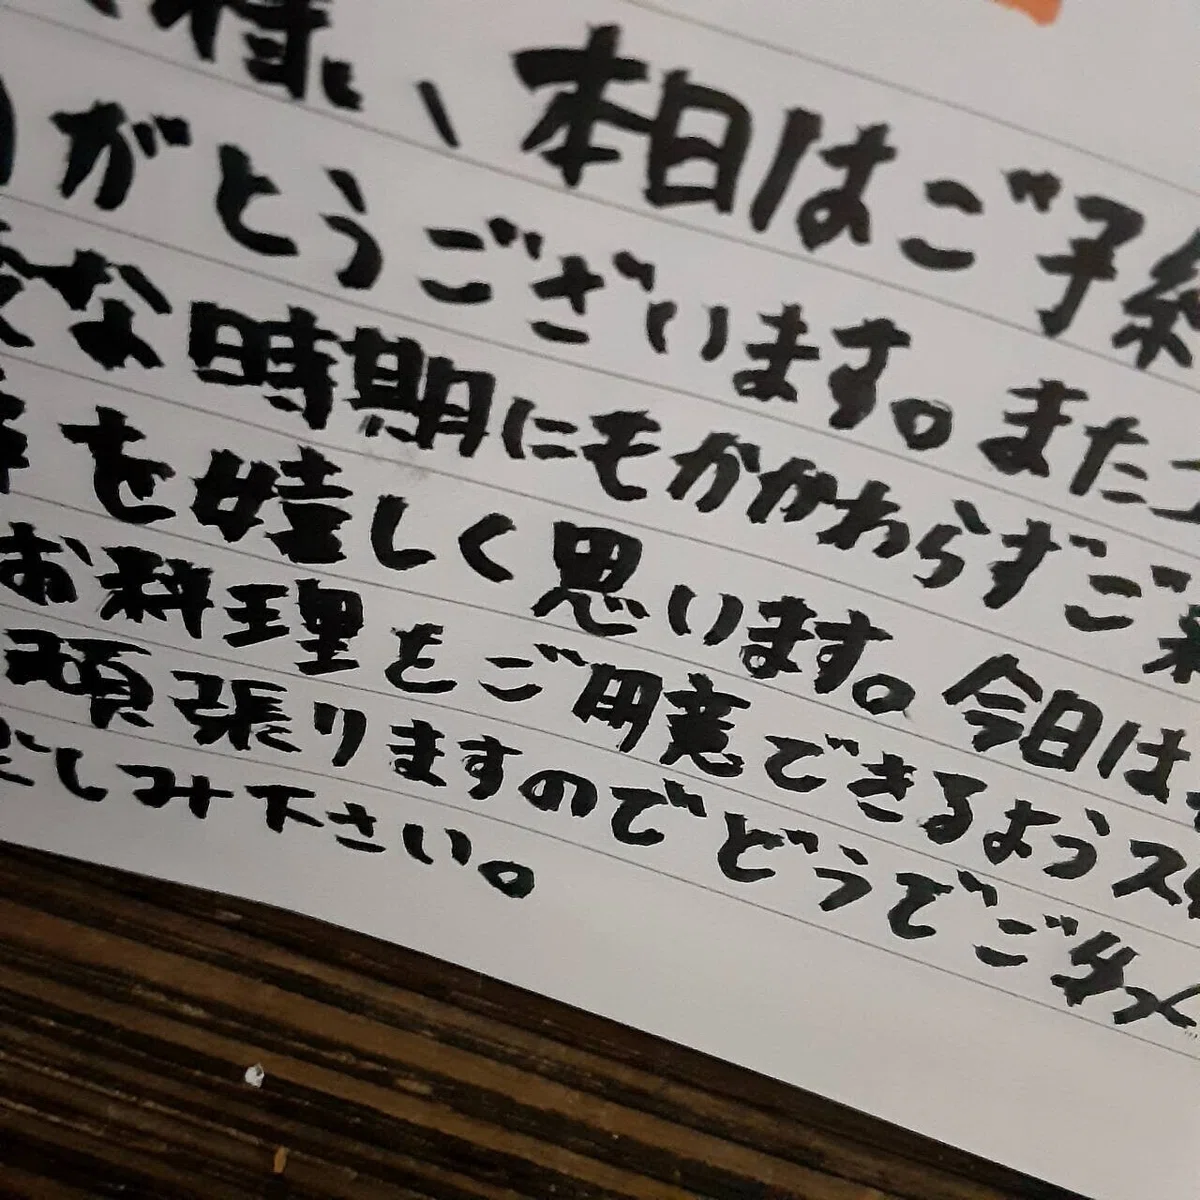 様、本日はご予約
がとうございます。また
な時期にもかかわらずご
を嬉しく思います。今日は
お料理をご用意できるようス
頑張りますのでどうでご
しみ下さい。